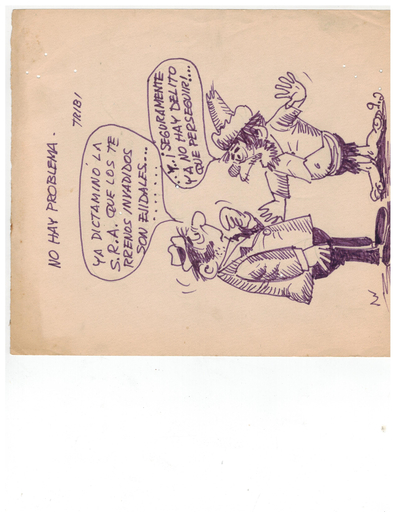 NO HAY PROBLEMA.
YA DICTAMINÓ LA
S.R.A. QUE LOS TE
RRENOS INVADIDOS
SON EJIDALES...
...Y, ¡SEGURAMENTE
YA NO HAY DELITO
QUE PERSEGUIR!...